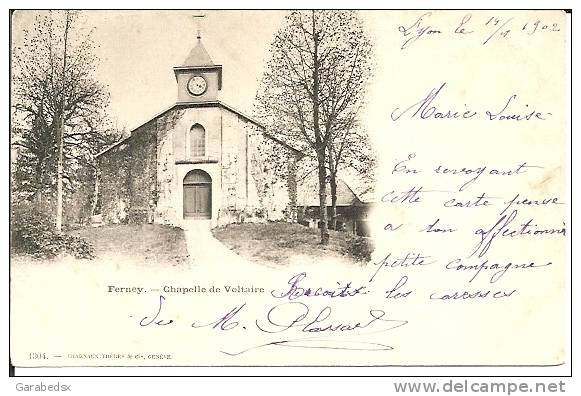 Lyon le 14/1 1902
Marie Louise
En revoyant
cette carte pense
a ton affectionné
petite compagne
Ferney. — Chapelle de Voltaire
Recoit les caresses
de M. Plassard
1304. — CHARNAUX FRÈRES & Cie, GENÈVE.
Garabedsx
http://www.delcampe.net